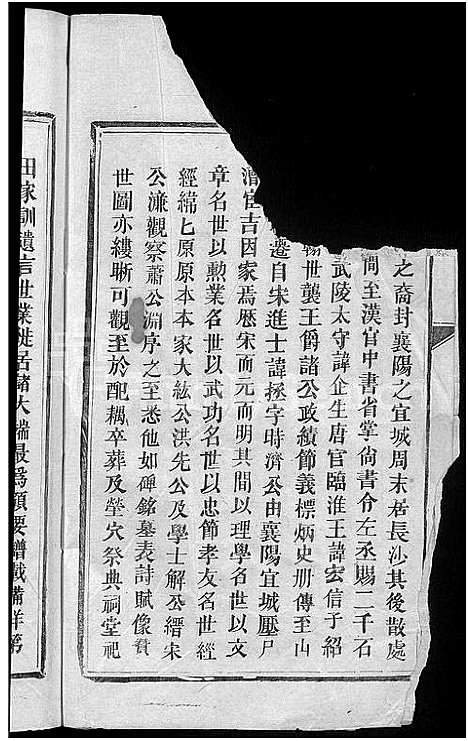 之裔封襄陽之宜城周末居長沙其後散處
間至漢官中書省掌尚書令左丞賜二千石
武陵太守諱企生唐官臨淮王諱宏信子紹
世襲王爵諸公政績節義標炳史册傳至山
遷自宋進士諱拯字時濟公由襄陽宜城壓尸
官吉因家焉歷宋而元而明其間以理學名世以文
章名世以勲業名世以武功名世以忠節孝友名世經
經緯七原原本本家大紘公洪先公及學士解公縉宋
公濂觀察蕭公淵序之至悉他如碑銘墓表詩賦像賛
世圖亦縷晰可觀至於配耦卒葬及塋穴祭典祠堂祀
田家訓遺言世業徙居諸大端最爲領要譜載備詳第